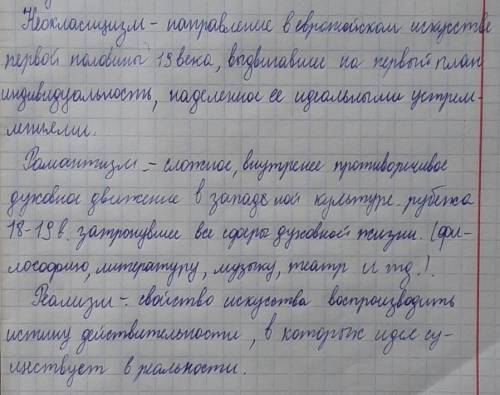 Неокласицизм - направление в европейском искусстве
первой половины 19 века, выдвигавшие на первый план
индивидуальность, наделенное ее идеальными устрем-
лениями.
Романтизм - сложное, внутренее противоречивое
духовное движение в западеной культуре рубежа
18-19 в. затронувшее все сферы духовной жизни. (фи-
лософию, литературу, музыку, театр и тд.).
Реализм - свойство искусства воспроизводить
истину действительности, в которых идея су-
ществует в реальности.